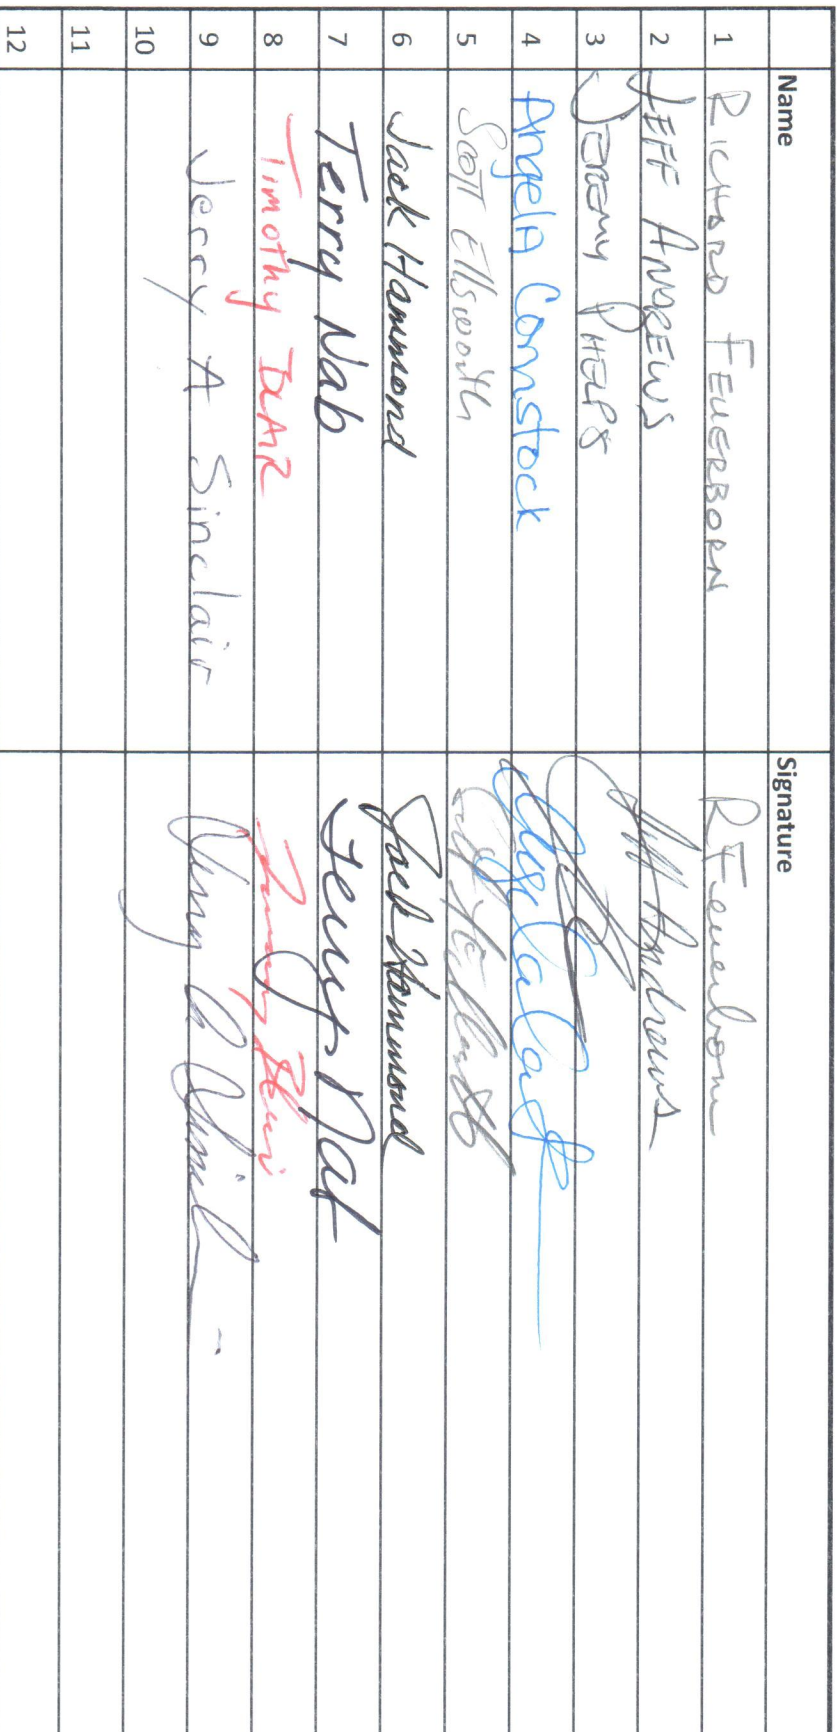 Name Signature
1 RICHARD FEUERBORN RFeuerborn
2 JEFF ANDREWS Jeff Andrews
3 JEREMY PHELPS
4 AngelA Comstock
5 Scott Ellsworth
6 Jack Hammond Jack Hammond
7 Terry Nab Terry Nab
8 Timothy BLAIR Timothy Blair
9 Jerry A Sinclair Jerry A Sinclair
10
11
12